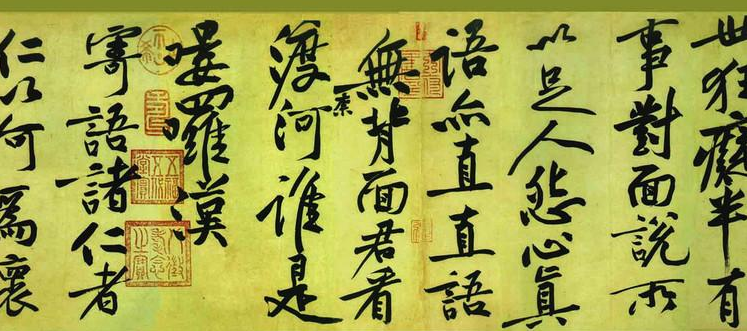 世狂癡半有
事對面說所
以足人怨心真
語亦直直語
無背面君看
渡柰河誰是
嘍羅漢
寄語諸仁者
仁以何爲懷